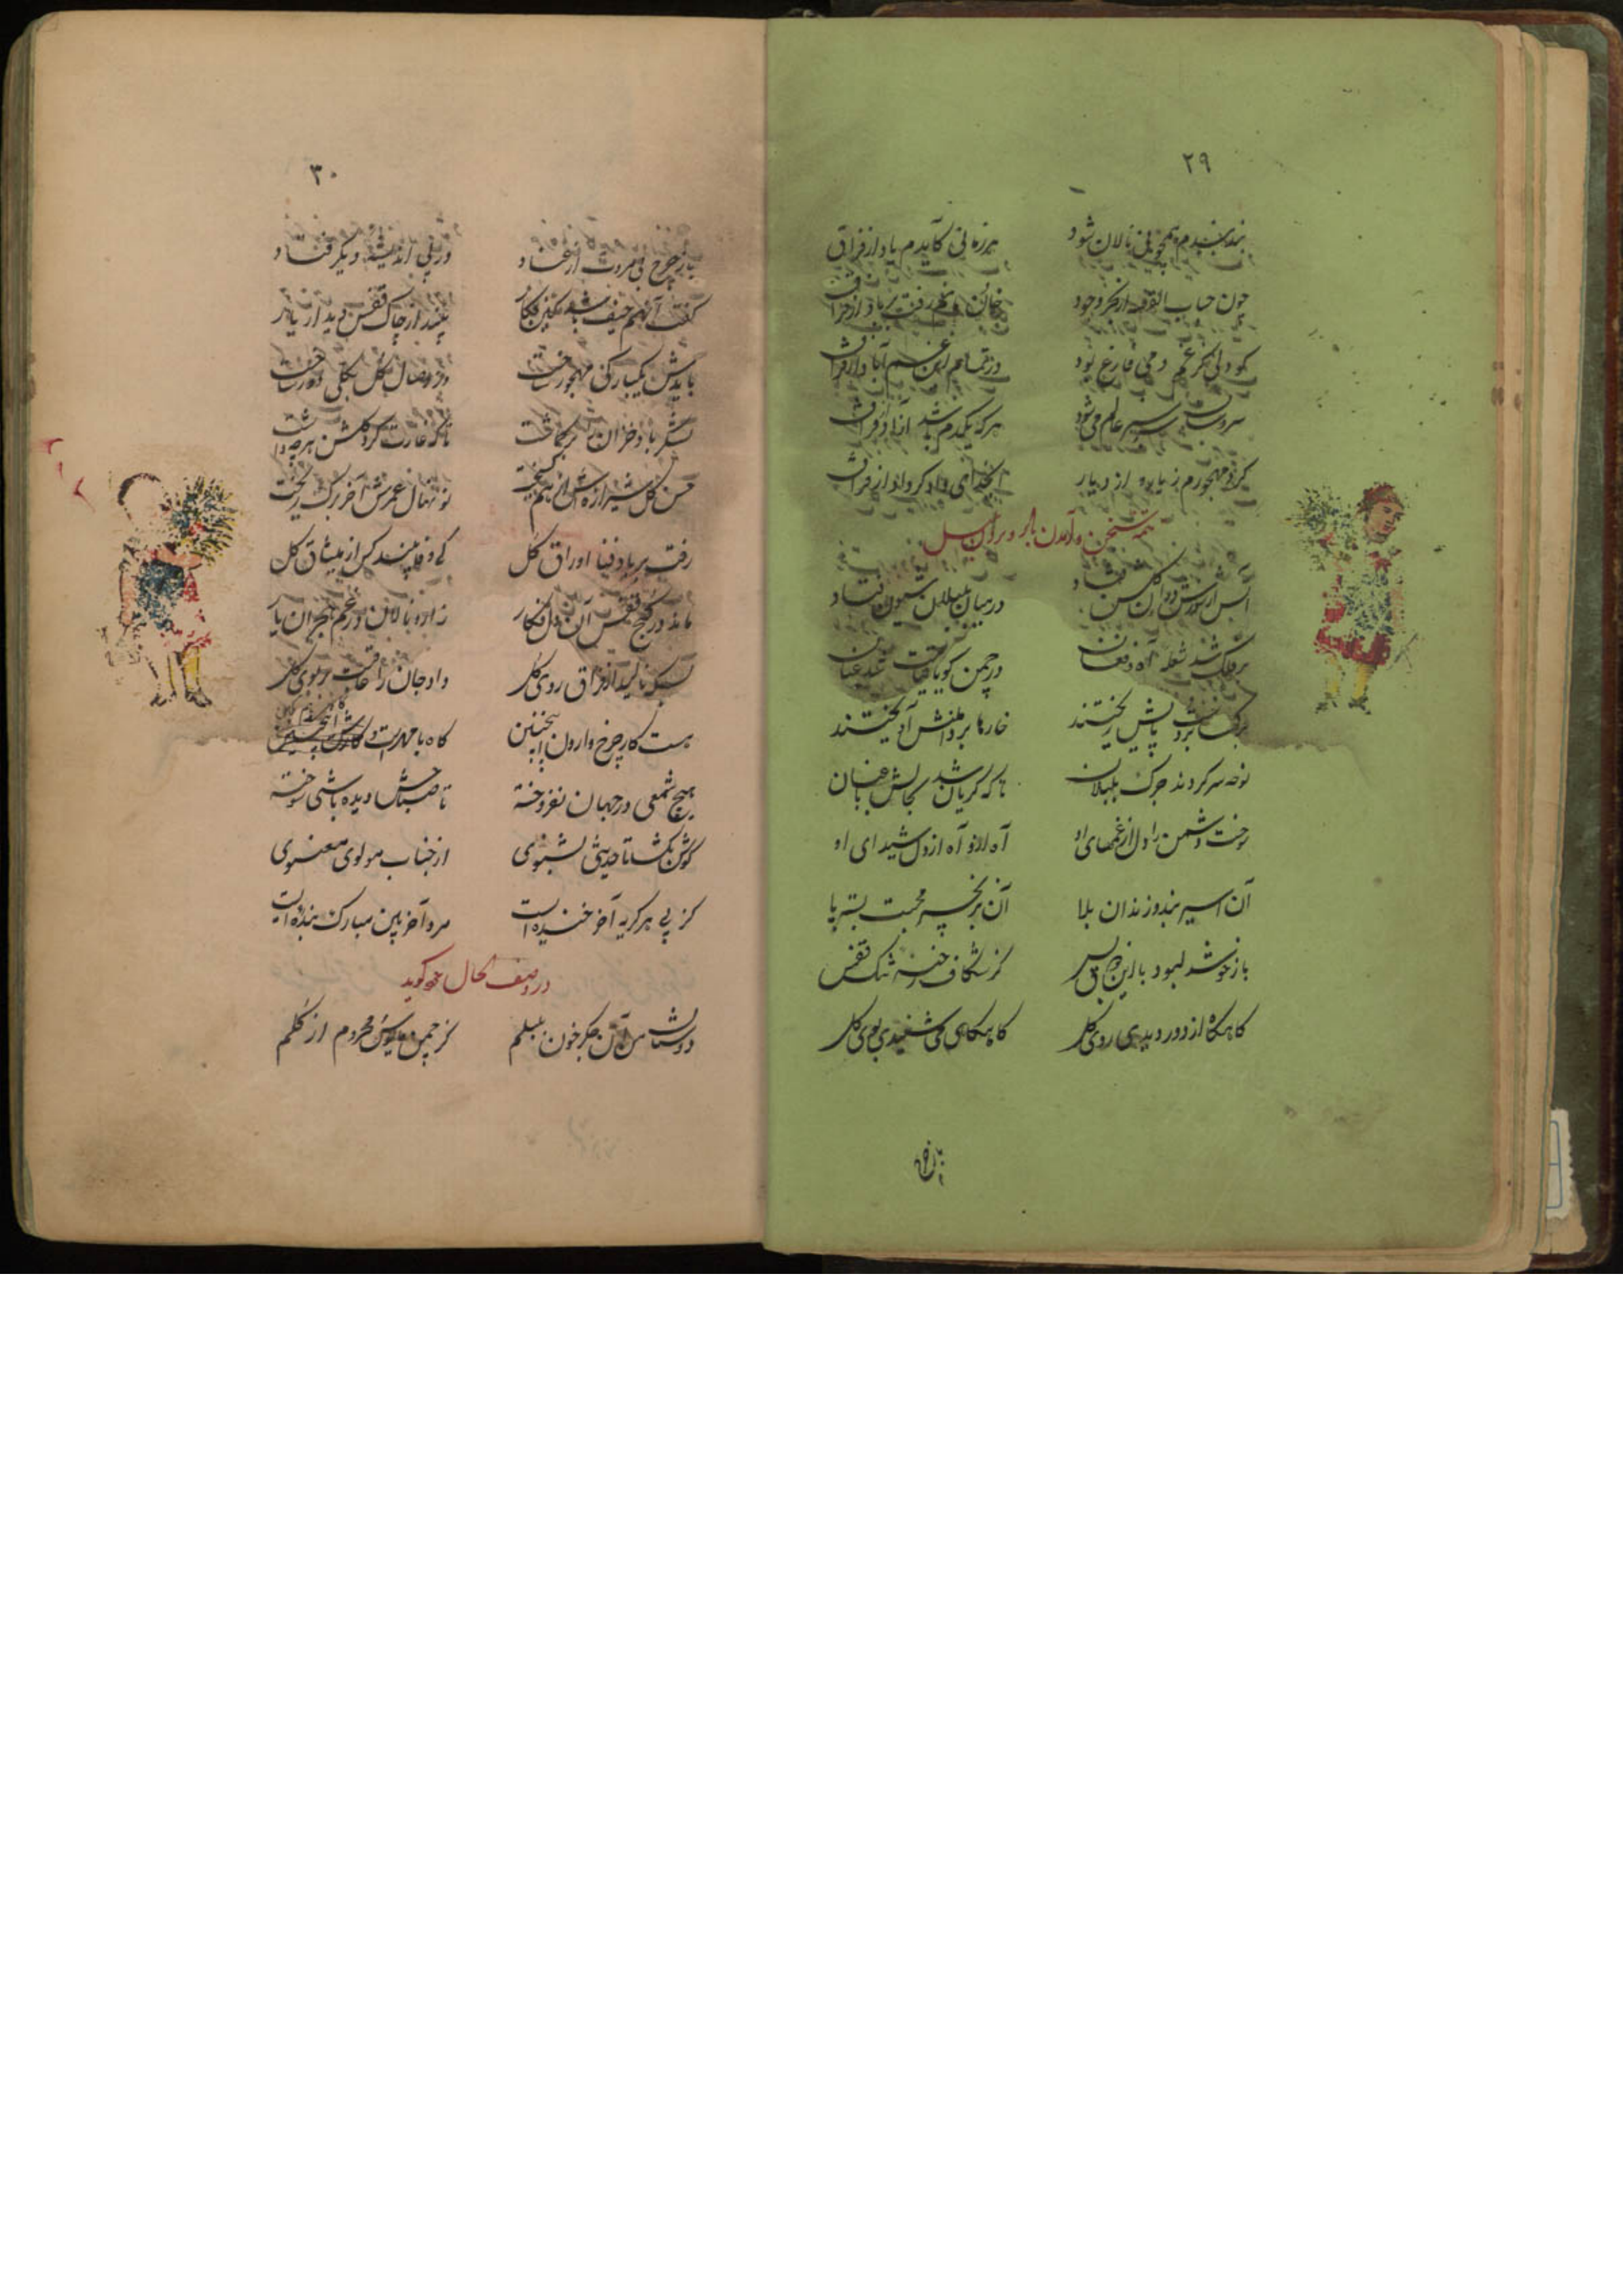 ٢٩
بند بندم همچو نی نالان شود هر زمانی کایدم یاد از فراق
چون حباب از فکر وجود
کو دلی کز غم دمی فارغ بود در تمام این غم آباد از فراق
سیر عالم می‌شود هر که یکدم باشد آزاد از فراق
کرد مهجورم ز یار و از دیار ای داد کرداد از فراق
تتمه سخن و آمدن بر سر
در میان بلبلان شیون فتاد
بر فلک شد شعله آه و فغان در چمن گویا قیامت شد عیان
ریختند خارها بر دامنش آویختند
نوحه سر کردند جرگ بلبلان تا که گریان شد بحالش باغبان
سوخت دشمن را دل از غمهای او آه از او آه از دل شیدای او
آن اسیر بند و زندان بلا آن بزنجیر محبت بسته پا
باز خوشدل بود با این کز شکاف رخنه تنگ قفس
گاهگاه از دور دیدی روی گل گاهگاهی می شنیدی بوی گل
باز چرخ
٣٠
باز چرخ بی مروت از عناد در پی اندیشه دیگر فتاد
گفت آنهم حیف باشد کین فکار بیند از چاک قفس دیدار یار
بایدش یکبارگی مهجور ساخت وز وصال گل بکلی دور ساخت
لشکر باد خزان تا که غارت کرد گلشن هرچه داشت
حسن گل شیرازه‌اش از هم گسیخت نو نهال عمرش آخر برگ ریخت
رفت بر باد فنا اوراق گل کی وفا بیند کس از میثاق گل
ماند در کنج قفس آن دل فکار زار و نالان در غم هجران یار
بسکه نالید از فراق روی گل داد جان را عاقبت بر بوی گل
هست کار چرخ وارون اینچنین گاه با مهرست و
هیچ شمعی در جهان نفروخته تا صباحش دیده باشی سوخته
گوش بگشا تا حدیثی بشنوی از جناب مولوی معنوی
کز پی هر گریه آخر خنده ایست مرد آخر بین مبارک بنده ایست
در وصف الحال خود گوید
دوستان من آن جگر خون بلبلم کز چمن مایوس و محروم از گلم